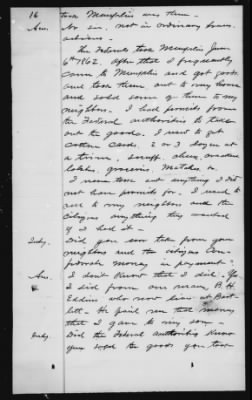 16 took Memphis was there.
Ans. No sir, not in ordinary transactions.
The Federals took Memphis June
6th 1862. After that I frequently
came to Memphis and got goods
and took them out to my home
and sold some of them to my
neighbors. I had permits from
the Federal authorities to take
out the goods. I used to get
cotton cards, 2 or 3 dozen at
a time, snuff, shoes,
, groceries, Matches &c.
I never took out anything I did
not have permits for. I used to
sell to my neighbors and the
citizens anything they wanted
if I had it.
Inty. Did you ever take from your
neighbors and the citizens Con-
federate money in payment?
Ans. I don't know that I did. Yes
I did from one man, B. H.
Eddins who now lives at Bart-
lett. He paid me that money
that I gave to my son.
Inty. Did the Federal Authorities know
you sold the goods you took